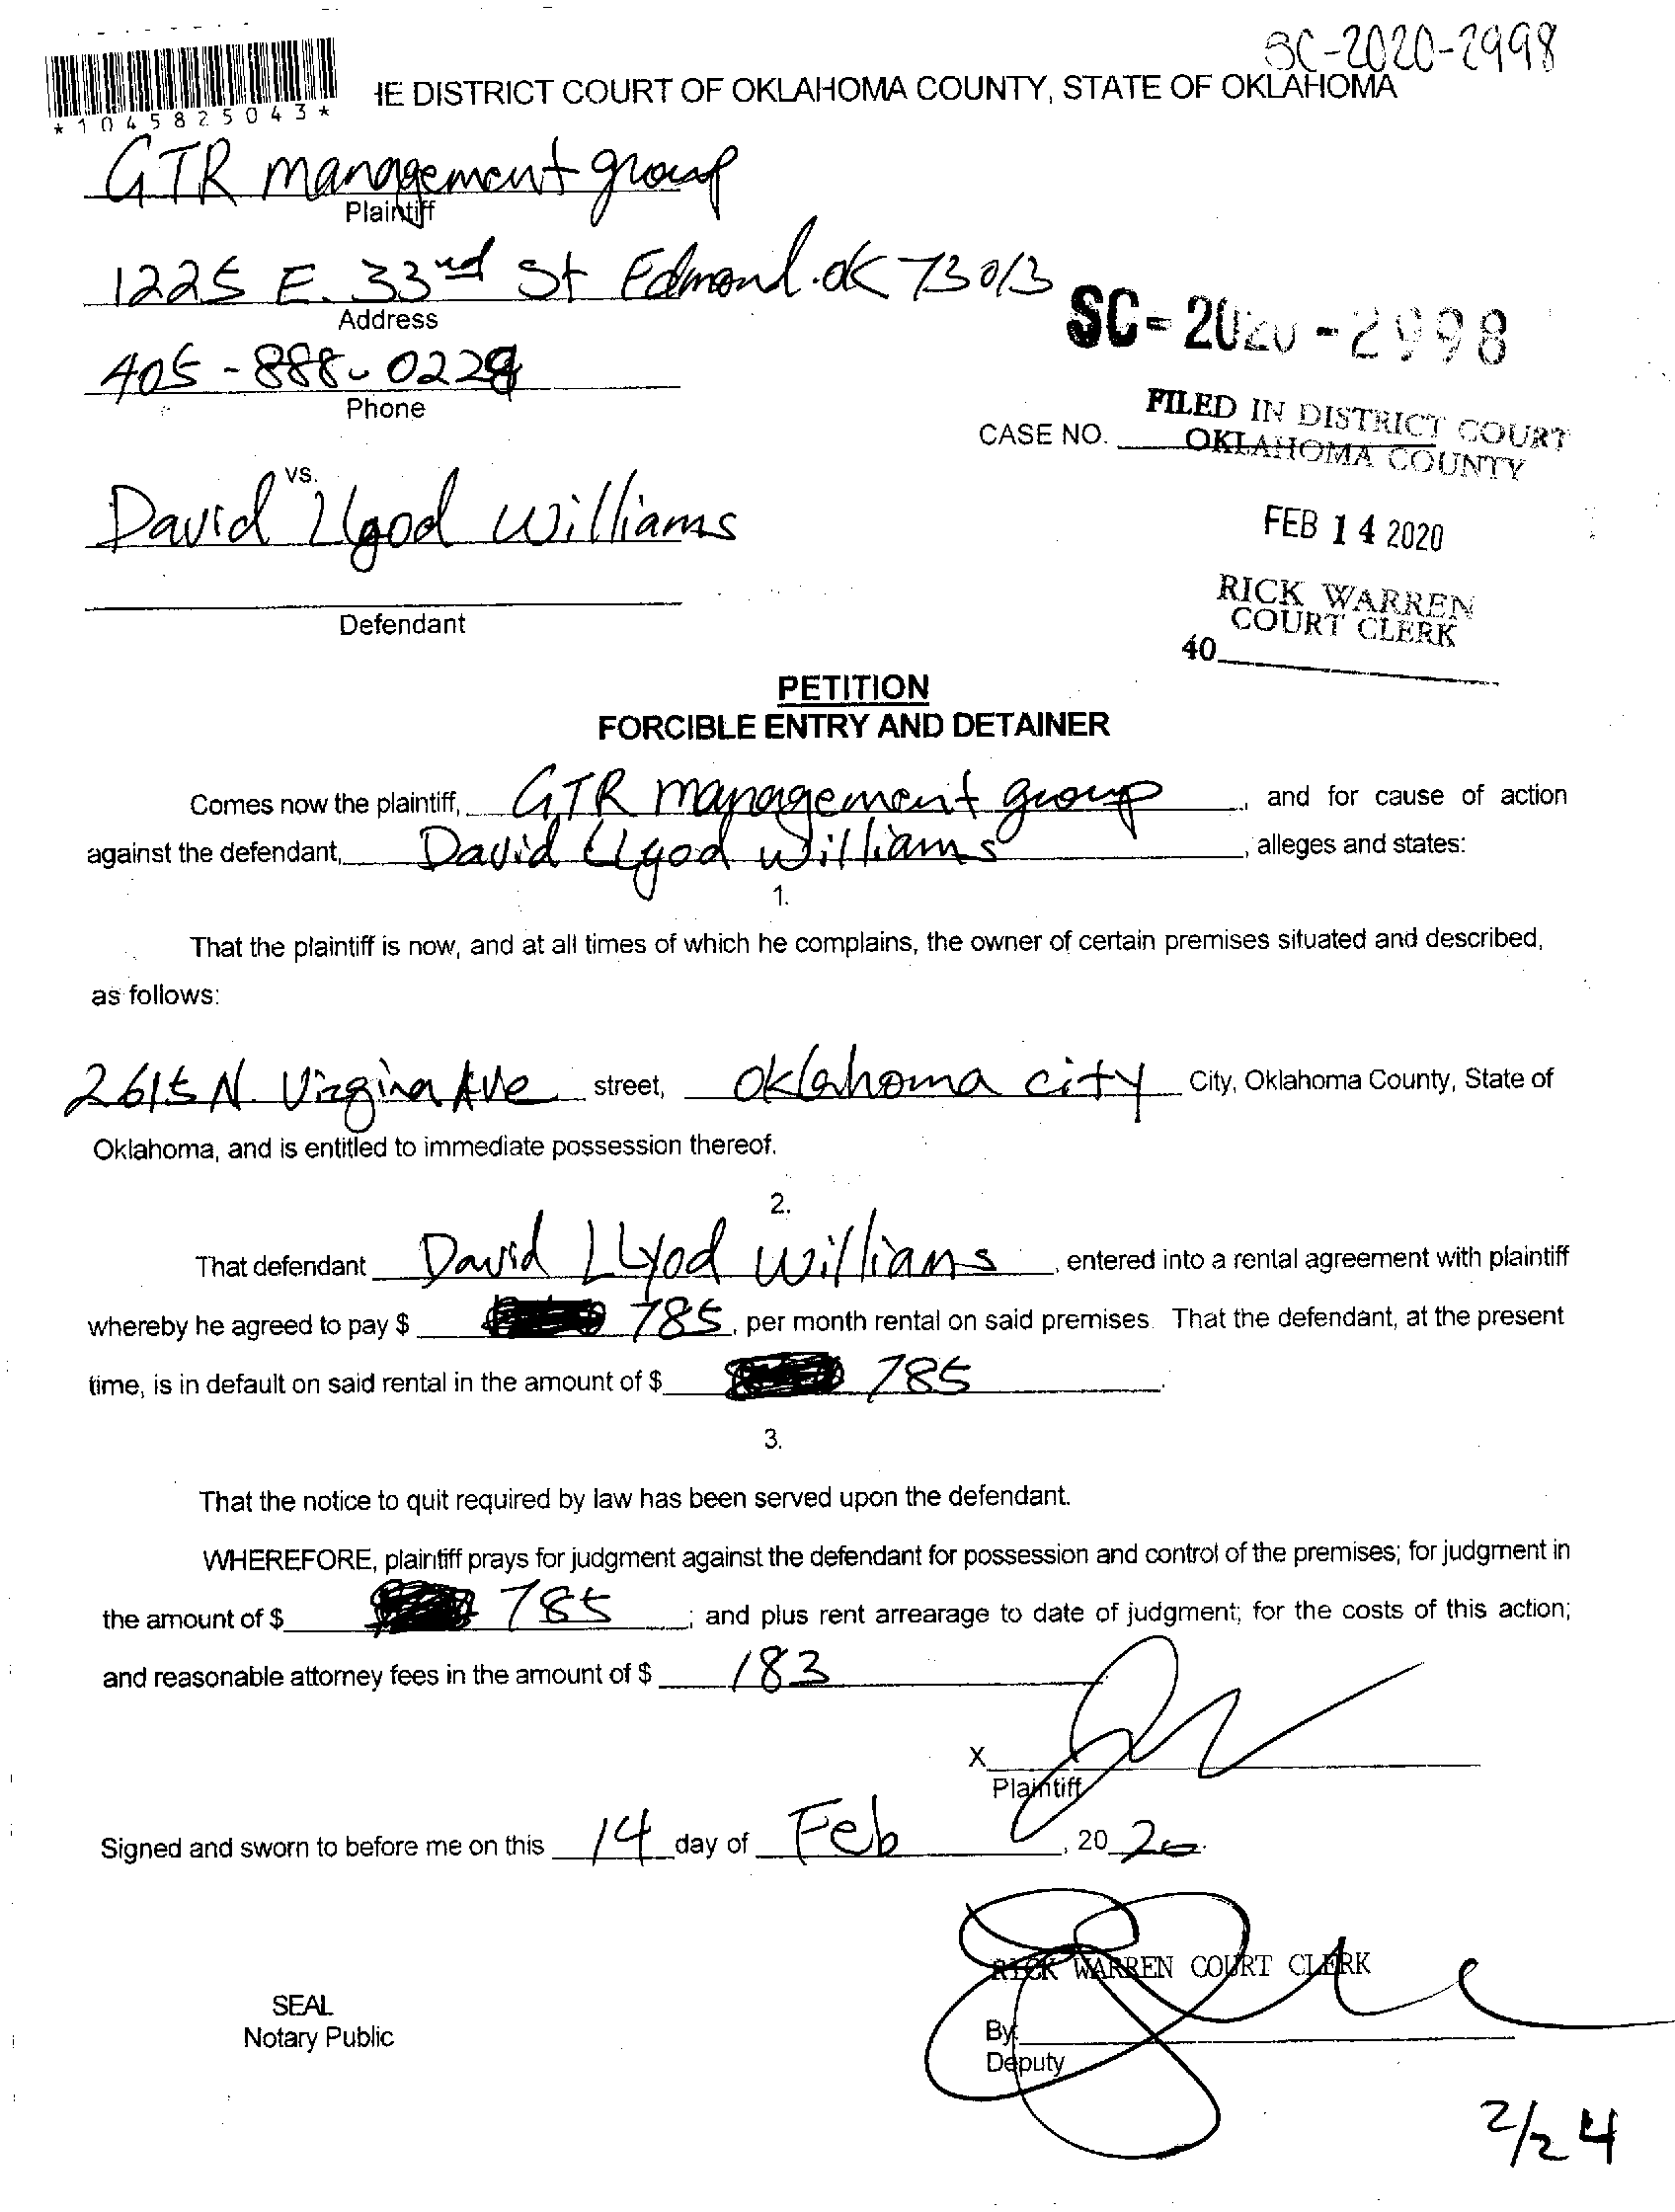 SC-2020-2998
*1045825043*
HE DISTRICT COURT OF OKLAHOMA COUNTY, STATE OF OKLAHOMA
GTR management group
Plaintiff
1225 E. 33rd St Edmond. OK 73013
Address
SC-2020-2998
405-888-0229
Phone
FILED IN DISTRICT COURT
CASE NO.
OKLAHOMA COUNTY
vs.
David Llyod Williams
FEB 14 2020
RICK WARREN
COURT CLERK
Defendant
40
PETITION
FORCIBLE ENTRY AND DETAINER
Comes now the plaintiff, GTR management group, and for cause of action
against the defendant, David LLyod Williams, alleges and states:
1.
That the plaintiff is now, and at all times of which he complains, the owner of certain premises situated and described,
as follows:
2615 N. Virgina Ave street, Oklahoma city City, Oklahoma County, State of
Oklahoma, and is entitled to immediate possession thereof.
2.
That defendant David LLyod Williams, entered into a rental agreement with plaintiff
whereby he agreed to pay $ 785, per month rental on said premises. That the defendant, at the present
time, is in default on said rental in the amount of $ 785.
3.
That the notice to quit required by law has been served upon the defendant.
WHEREFORE, plaintiff prays for judgment against the defendant for possession and control of the premises; for judgment in
the amount of $ 785; and plus rent arrearage to date of judgment; for the costs of this action;
and reasonable attorney fees in the amount of $ 183
X
Plaintiff
Signed and sworn to before me on this 14 day of Feb, 2020.
RICK WARREN COURT CLERK
SEAL
Notary Public
By
Deputy
2/24